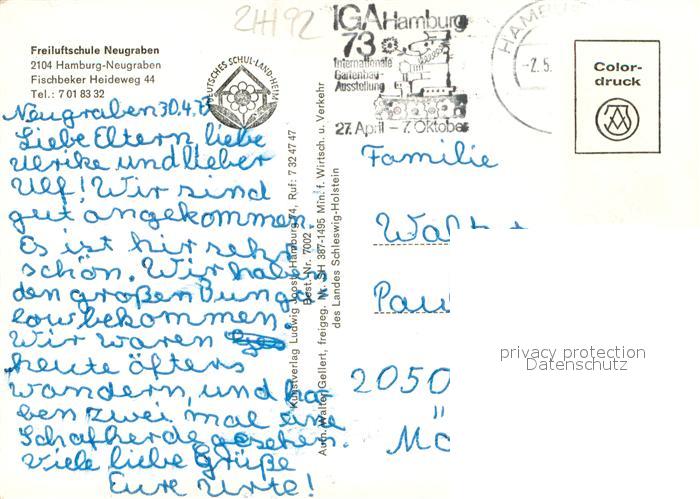 2HH 92
Freiluftschule Neugraben
2104 Hamburg-Neugraben
Fischbeker Heideweg 44
Tel.: 7 01 83 32
DEUTSCHES SCHUL-LAND-HEIM
IGA Hamburg
73
Internationale
Gartenbau-
Ausstellung
27. April – 7. Oktober
HAMBURG
-2.5.
Color-
druck
Neugraben 30.4.73
Liebe Eltern, liebe
Ulrike und lieber
Ulf! Wir sind
gut angekommen.
Es ist hir sehr
schön. Wir haben
den großen Bunga
low bekommen.
Wir waren
heute öfters
wandern, und ha
ben zwei mal eine
Schafherde gesehen.
Viele liebe Grüße
Eure Urte!
Kunstverlag Ludwig Joost, Hamburg 74, Ruf: 7 32 47 47
Best. Nr. 7002
Aufn. Walter Gellert, freigeg. Nr. SH 387-1495 Min. f. Wirtsch. u. Verkehr
des Landes Schleswig-Holstein
Familie
Wal
Pau
2050
privacy protection
Datenschutz